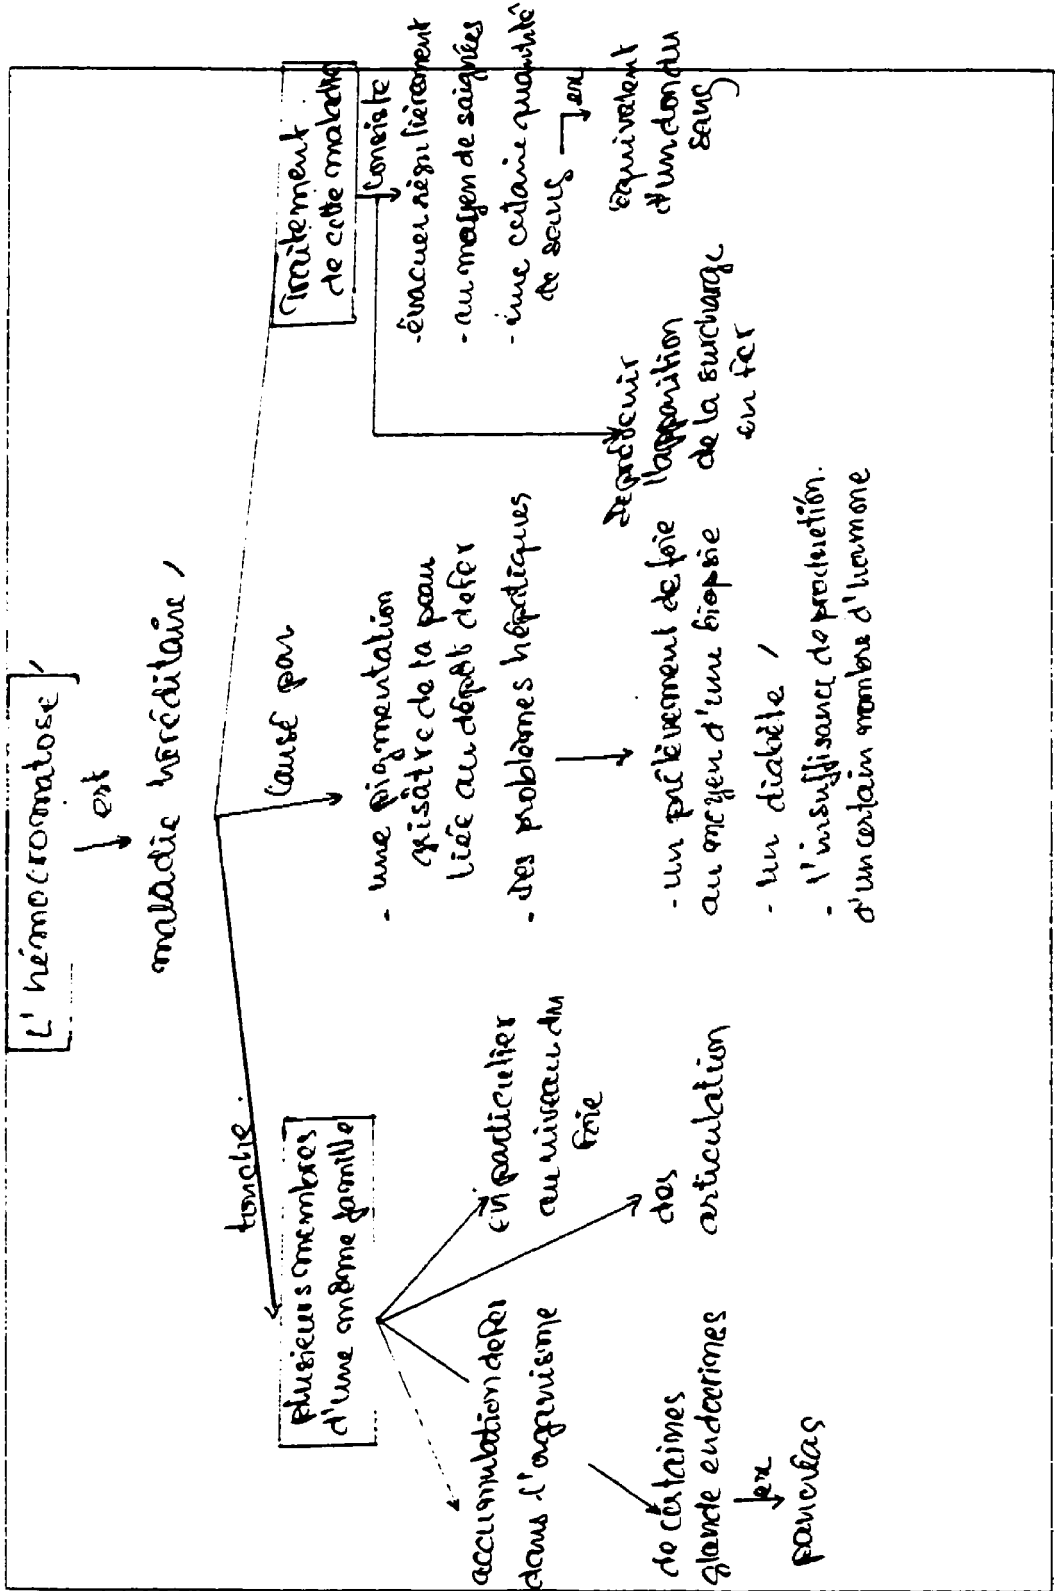 L'hémocromatose
est
maladie héréditaire
touche
Causé par
plusieurs membres
d'une même famille
accumulation de fer
dans l'organisme
en particulier
au niveau du
foie
de certaines
glande endocrines
ex
pancréas
des
articulation
- une pigmentation
grisâtre de la peau
liée au dépôt de fer
- des problèmes hépatiques
- un prélèvement de foie
au moyen d'une biopsie
- un diabète
- l'insuffisance de production
d'un certain nombre d'hormone
Traitement
de cette maladie
Consiste
- évacuer régulièrement
- au moyen de saignées
- une certaine quantité
de sang
ex
équivalent
d'un don du
sang
de prévenir
l'apparition
de la surcharge
en fer